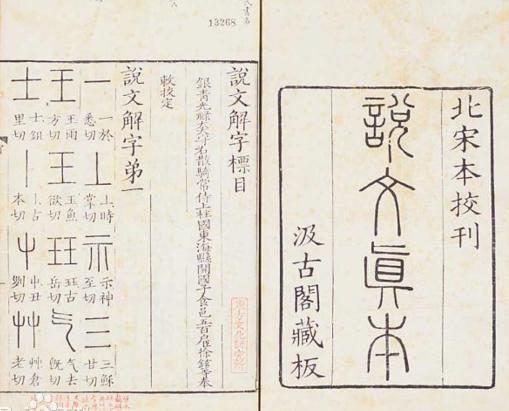 北宋本挍刊
說文眞本
汲古閣藏板
13268
說文解字標目
銀青光祿大夫守右散騎常侍上柱國東海縣開國子食邑五百戶徐鉉等奉
敕挍定
說文解字弟一
一 一於悉切 丄 上時掌切 示 示神至切 三 三穌甘切
王 王雨方切 王 玉魚欲切 玨 玨古岳切 气 气去旣切
士 士鉏里切 丨 丨古本切 屮 屮丑切 艸 艸倉老切